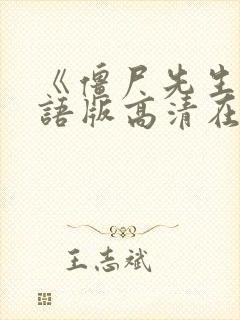 《僵尸先生
語版高清在
王志斌